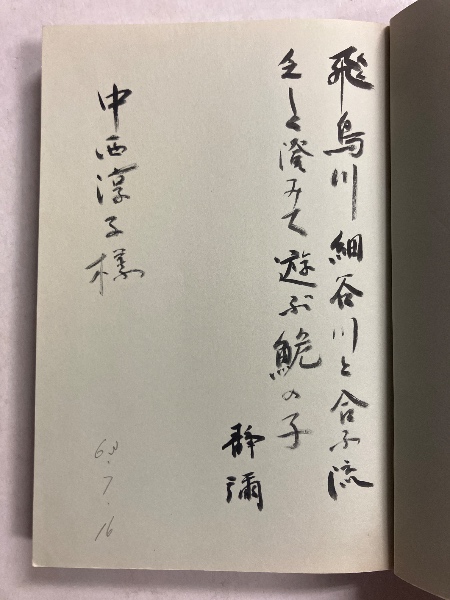 飛鳥川 細谷川と合ふ流
澄みて 遊ぶ 鮠の子
静彌
中西淳子様
7.16